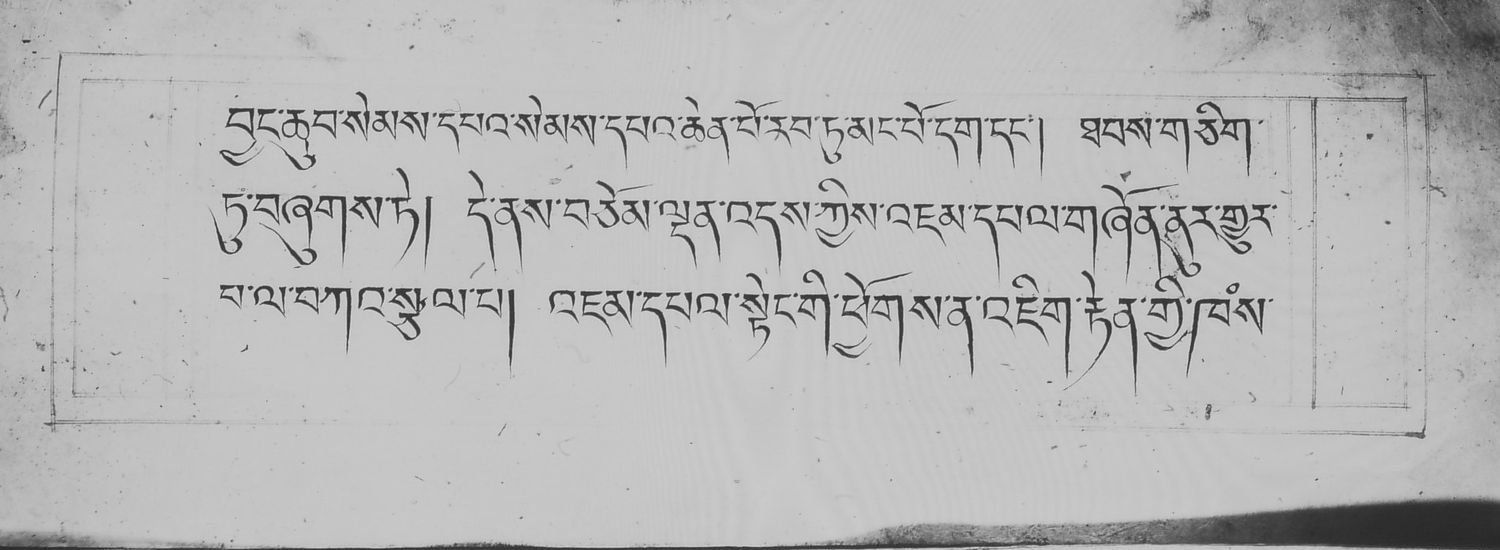 བྱང་ཆུབ་སེམས་དཔའ་སེམས་དཔའ་ཆེན་པོ་རབ་ཏུ་མང་པོ་དག་དང་། ཐབས་གཅིག་
ཏུ་བཞུགས་ཏེ། དེ་ནས་བཅོམ་ལྡན་འདས་ཀྱིས་འཇམ་དཔལ་གཞོན་ནུར་གྱུར་
པ་ལ་བཀའ་སྩལ་པ། འཇམ་དཔལ་སྟེང་གི་ཕྱོགས་ན་འཇིག་རྟེན་གྱི་ཁམས་